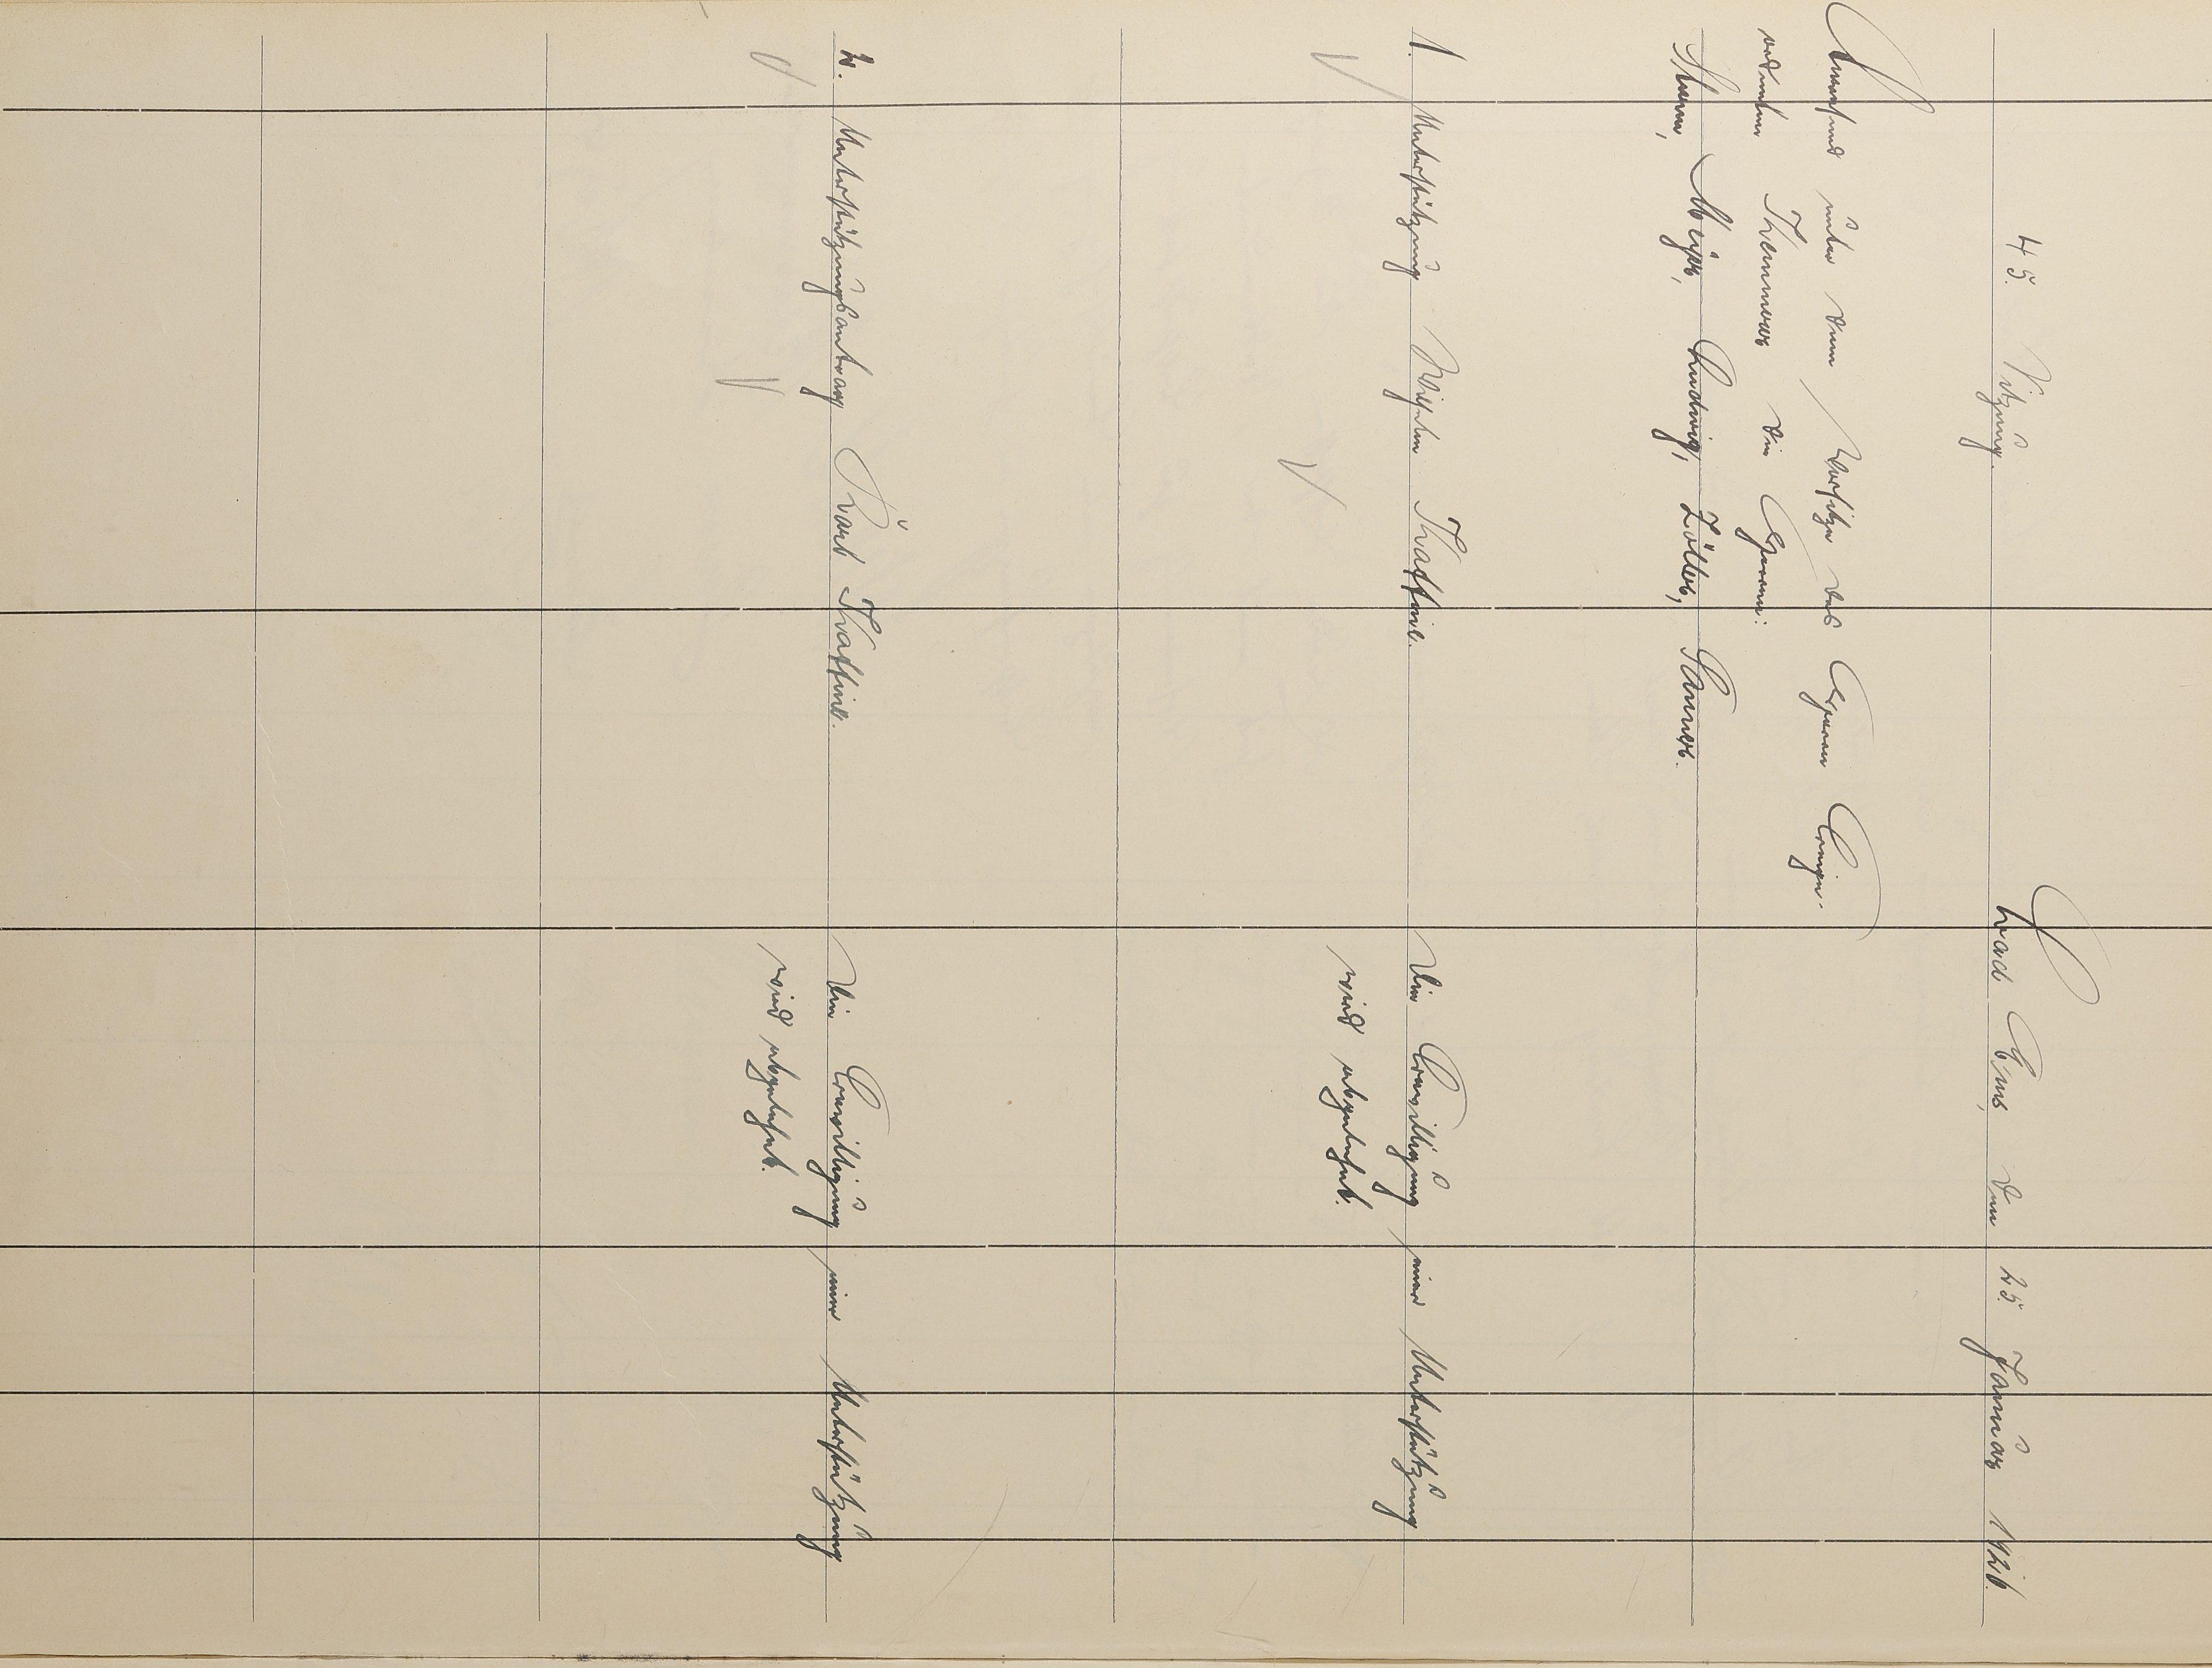 45. Sitzung.
Bad Ems, den 25. Januar 1926.
Anwesend unter dem Vorsitze des Herrn Beige-
ordneten Kremer die Herren:
Meyer, Ludwig, Zöller, Sauer.
1. Unterstützung Wilhelm Kraffine.
Die Bewilligung einer Unterstützung
wird abgelehnt.
2. Unterstützungsantrag Karl Kraffine.
Die Bewilligung einer Unterstützung
wird abgelehnt.